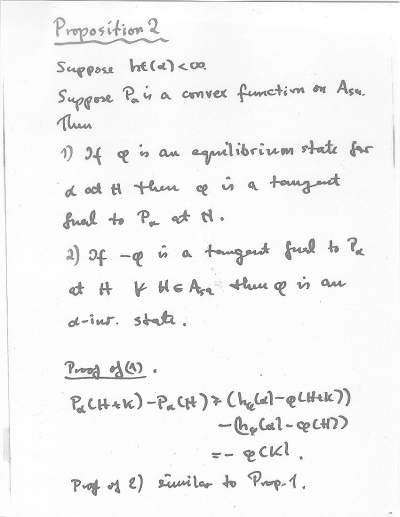 Proposition 2
Suppose ht(α) < ∞.
Suppose Pα is a convex function on Asa.
Then
1) If φ is an equilibrium state for
α at H then φ is a tangent
fnal to Pα at H.
2) If -φ is a tangent fnal to Pα
at H ∀ H ∈ Asa then φ is an
α-inv. state.
Proof of (1).
Pα(H+K) - Pα(H) ≥ (hφ(α) - φ(H+K))
- (hφ(α) - φ(H))
= - φ(K).
Prof of 2) similar to Prop. 1.